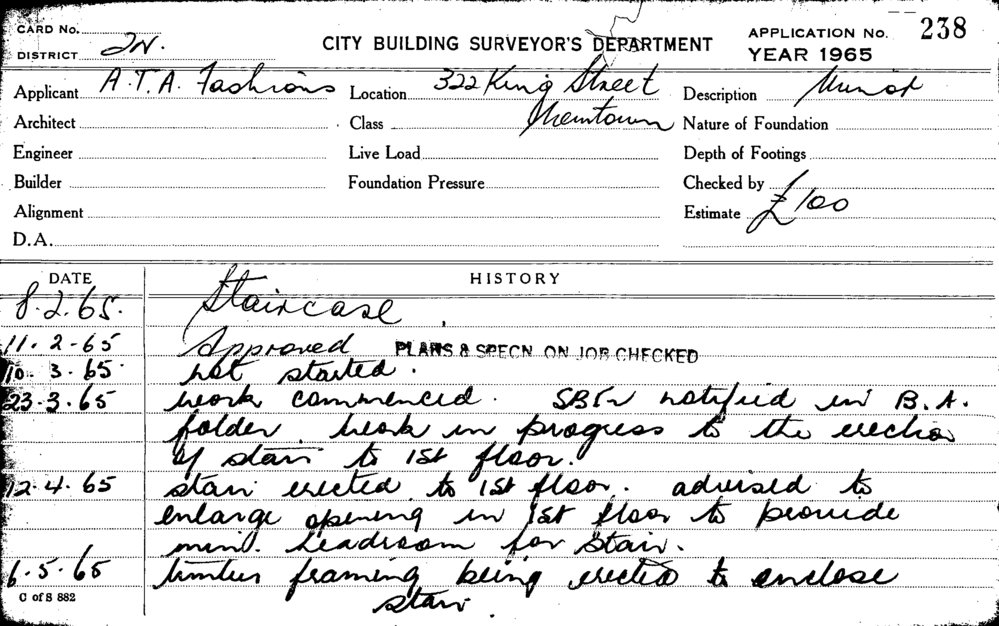 CARD No.
DISTRICT 2N.
CITY BUILDING SURVEYOR'S DEPARTMENT
APPLICATION No. 238
YEAR 1965
Applicant A.T.A. Fashions Location 322 King Street Description Minor
Architect Class Newtown Nature of Foundation
Engineer Live Load Depth of Footings
Builder Foundation Pressure Checked by
Alignment Estimate £100
D.A.
DATE HISTORY
8.2.65. Staircase
11.2.65 Approved PLANS & SPECN ON JOB CHECKED
10.3.65 not started.
23.3.65 work commenced. notified in B.A.
folder. Work in progress to the erection
of stair to 1st floor.
12.4.65 stair erected to 1st floor. advised to
enlarge opening in 1st floor to provide
min. headroom for stair.
6.5.65 timber framing being erected to enclose
C of S 882 stair.